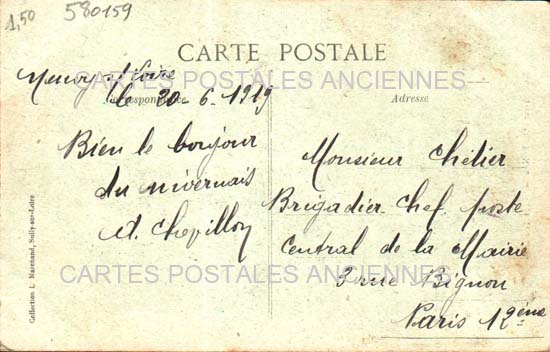 1,50
580159
CARTE POSTALE
CARTES POSTALES ANCIENNES
Correspondance
Adresse
Neuvy s/Loire
le 20-6-1919
Bien le bonjour
du nivernais
Monsieur Chélier
Brigadier-Chef poste
Central de la Mairie
3 rue Bignon
Paris 12ème
CARTES POSTALES ANCIENNES
Collection L. Marchand, Sully-sur-Loire